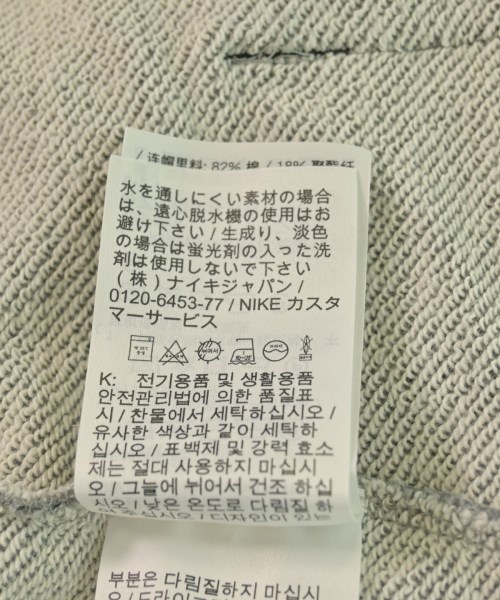 / 连帽里料: 82% 棉 / 18% 聚酯纤
水を通しにくい素材の場合
は、遠心脱水機の使用はお
避け下さい / 生成り、淡色
の場合は蛍光剤の入った洗
剤は使用しないで下さい
(株) ナイキジャパン /
0120-6453-77 / NIKE カスタ
マーサービス
K: 전기용품 및 생활용품
안전관리법에 의한 품질표
시 / 찬물에서 세탁하십시오 /
유사한 색상과 같이 세탁하
십시오 / 표백제 및 강력 효소
제는 절대 사용하지 마십시
오 / 그늘에 뉘어서 건조 하십
시오 / 낮은 온도로 다림질 하
십시오 / 디자인이 있는
부분은 다림질하지 마십시